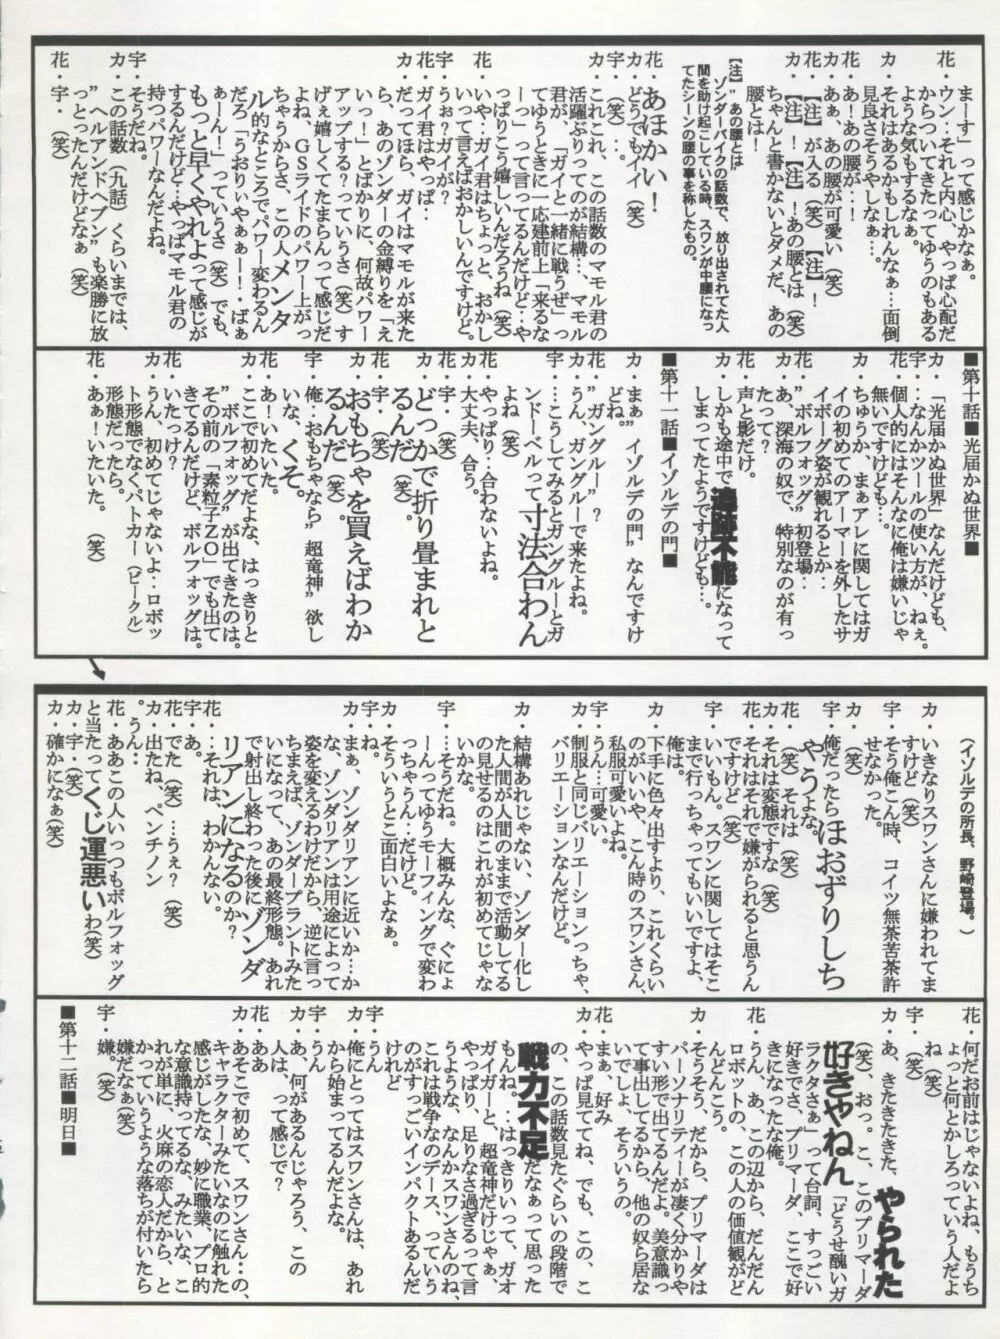 まーす」って感じかなぁ。
花・ウン‥それと内心、やっぱ心配だ
からついてきたってゆうのもある
ような気もするなぁ。
カ・それはあるかもしれんなぁ…面倒
見良さそうやしなぁ…。
花・あ！あの腰が‥！
カ・あぁ、あの腰が可愛い（笑）
花・【注】が入る（笑）【注】！
カ・【注】！【注】！あの腰とは（笑）
ちゃんと書かないとダメだ、あの
腰とは！
【注】“あの腰とは”
ゾンダーバイクの話数で、放り出されてた人
間を助け起こしている時、スワンが中腰になっ
てたシーンの腰の事を称したもの。
花・あほかい！
カ・どうでもイイ（笑）
宇・（笑）…。
カ・これこれ、この話数のマモル君の
活躍ぶりってのが結構…、マモル
君が、「ガイと一緒に戦うぜ」っ
てゆうときに一応建前上「来るな
ーっ」って言ってるんだけど…や
っぱりこう嬉しいんだろうね（笑）
花・いや‥ガイ君はちょっと、おかし
いって言えばおかしいんですけど。
宇・うぉ？ガイが？
花・ガイ君はやっぱ‥
カ・だってほら、ガイはマモルが来た
ら、あのゾンダーの金縛りを「え
いっ！」とばかりに、何故パワー
アップする？っていうさ（笑）す
げぇ嬉しくてたまらんって感じだ
よね、GSライドのパワー上がっ
ちゃうからさ、この人メンタ
ル的なところでパワー変わるん
だろ「うおりぃやぁぁー！・ばぁ
ぁーん！」っていうさ（笑）でも、
もっと早くやれよって感じが
するんだけど…やっぱマモル君の
持つパワーなんだよね。
宇・そうだね。
カ・この話数（九話）くらいまでは、
“ヘルアンドヘブン”も楽勝に放
っとったんだけどなぁ（笑）
花・宇・（笑）
■第十話■光届かぬ世界■
カ・「光届かぬ世界」なんだけども、
宇・‥なんかツールの使い方が、ねぇ。
花・個人的にはそんなに俺は嫌いじゃ
無いですけども…。
カ・ちゅうか、まぁアレに関してはガ
イの初めてのアーマーを外したサ
イボーグ姿が観れるとか‥
花・“ボルフォッグ”初登場‥
カ・あ、深海の奴で、特別なのが有っ
たって？
花・声と影だけ。
カ・しかも途中で追跡不能になって
しまってたようですけども…。
■第十一話■イゾルデの門■
カ・まぁ“イゾルデの門”なんですけ
どね。
花・“ガングルー”？
カ・うん、ガングルで来たよね。
宇・…こうしてみるとガングルーとガ
ンドーベルって寸法合わん
よね（笑）
花・やっぱり‥合わないよね。
カ・大丈夫、合う。
宇・（笑）
カ・どっかで折り畳まれと
るんだ（笑）。
花・宇・（笑）
カ・おもちゃを買えばわか
るんだ（笑）。
宇・俺‥おもちゃなら“超竜神”欲し
いな、くそ。
花・あ！いたいた。
カ・ここで初めてだよな、はっきりと
“ボルフォッグ”が出てきたのは。
その前の「素粒子ZO」でも出て
きてるんだけど、ボルフォッグは。
花・いたっけ？
カ・うん、初めてじゃないよ‥ロボッ
ト形態でなくパトカー（ビークル）
形態だったら。
花・あぁ！いたいた。（笑）
（イゾルデの所長、野崎登場。）
カ・いきなりスワンさんに嫌われてま
すけど（笑）
宇・そう俺こん時、コイツ無茶苦茶許
せなかった。
カ・（笑）
宇・俺だったらほおずりしち
ゃうよな。
花・（笑）それは（笑）
カ・それは変態ですな（笑）
花・それはそれで嫌がられると思うん
ですけど（笑）
宇・いいもん。スワンに関してはそこ
まで行っちゃってもいいですよ、
俺は。
カ・下手に色々出すより、これくらい
のがいいや、こん時のスワンさん、
私服可愛いよね。
宇・うん…可愛い。
カ・制服と同じバリエーションっちゃ、
バリエーションなんだけど。
カ・結構あれじゃない、ゾンダー化し
た人間が人間のままで活動してる
の見せるのはこれが初めてじゃな
いかな。
宇・…そうだね。大概みんな、ぐにょ
ーんってゆうモーフィングで変わ
っちゃうん‥だけど。
カ・そういうとこ面白いよなぁ。
宇・ね。
カ・まぁ、ゾンダリアンに近いか…か
な、ゾンダリアンは用途によって
姿を変えるわけだから、逆に言っ
ちまえば、ゾンダープラントみた
いになって、あの最終形態。あれ
で射出し終わった後にゾンダ
リアンになるのか？
花・‥それは、わかんない。
宇・あ。
花・でた（笑）…うぇ？（笑）
カ・出たね、ペンチノン
。うん‥
花・ああこの人いっつもボルフォッグ
と当たってくじ運悪いわ（笑）
カ・宇・（笑）
カ・確かになぁ（笑）
花・何だお前はじゃないよね、もうち
ょっと何とかしろっていう人だよ
ね（笑）
カ・あ、きたきたきた、やられた
（笑）、おっ。こ、このプリマーダ
好きやねん「どうせ醜いガ
ラクタさぁ」って台詞、すっごい
好きでさ、プリマーダ、ここで好
きになったな俺。
花・うん、あ、この辺から、だんだん
ロボットの、この人の価値観がど
んどんこう。
カ・そうそう、だから、プリマーダは
パーソナリティーが凄く分かりや
すい形で出てるんだよ。美意識っ
て事出してるから、他の奴ら居な
いでしょ、そういうの。
花・まぁ、好み
カ・やっぱ見ててね、でも、この、こ
の、この話数見たぐらいの段階で
戦力不足だなぁって思った
もんね。‥はっきりいって、ガオ
ガイガーと、超竜神だけじゃぁ、
やっぱり、足りなさ過ぎるって言
うような、なんかスワンさんのね、
これは戦争なのデース、っていう
のがすっごいインパクトあるんだ
けれど
宇・うん
カ・俺にとってはスワンさんは、あれ
から始まってるんだよな。
宇・うん
カ・あ、何があるんじゃろう、この
人は、って感じで？
花・ああ
カ・あそこで初めて、スワンさん…の、
キャラクターみたいなのに触れた
感じがしたな、妙に職業、プロ的
な意識持ってるな、みたいな、こ
れが単に、火麻の恋人だから、と
かっていうような落ちが付いたら
嫌だなぁ（笑）
宇・嫌。（笑）
■第十二話■明日■